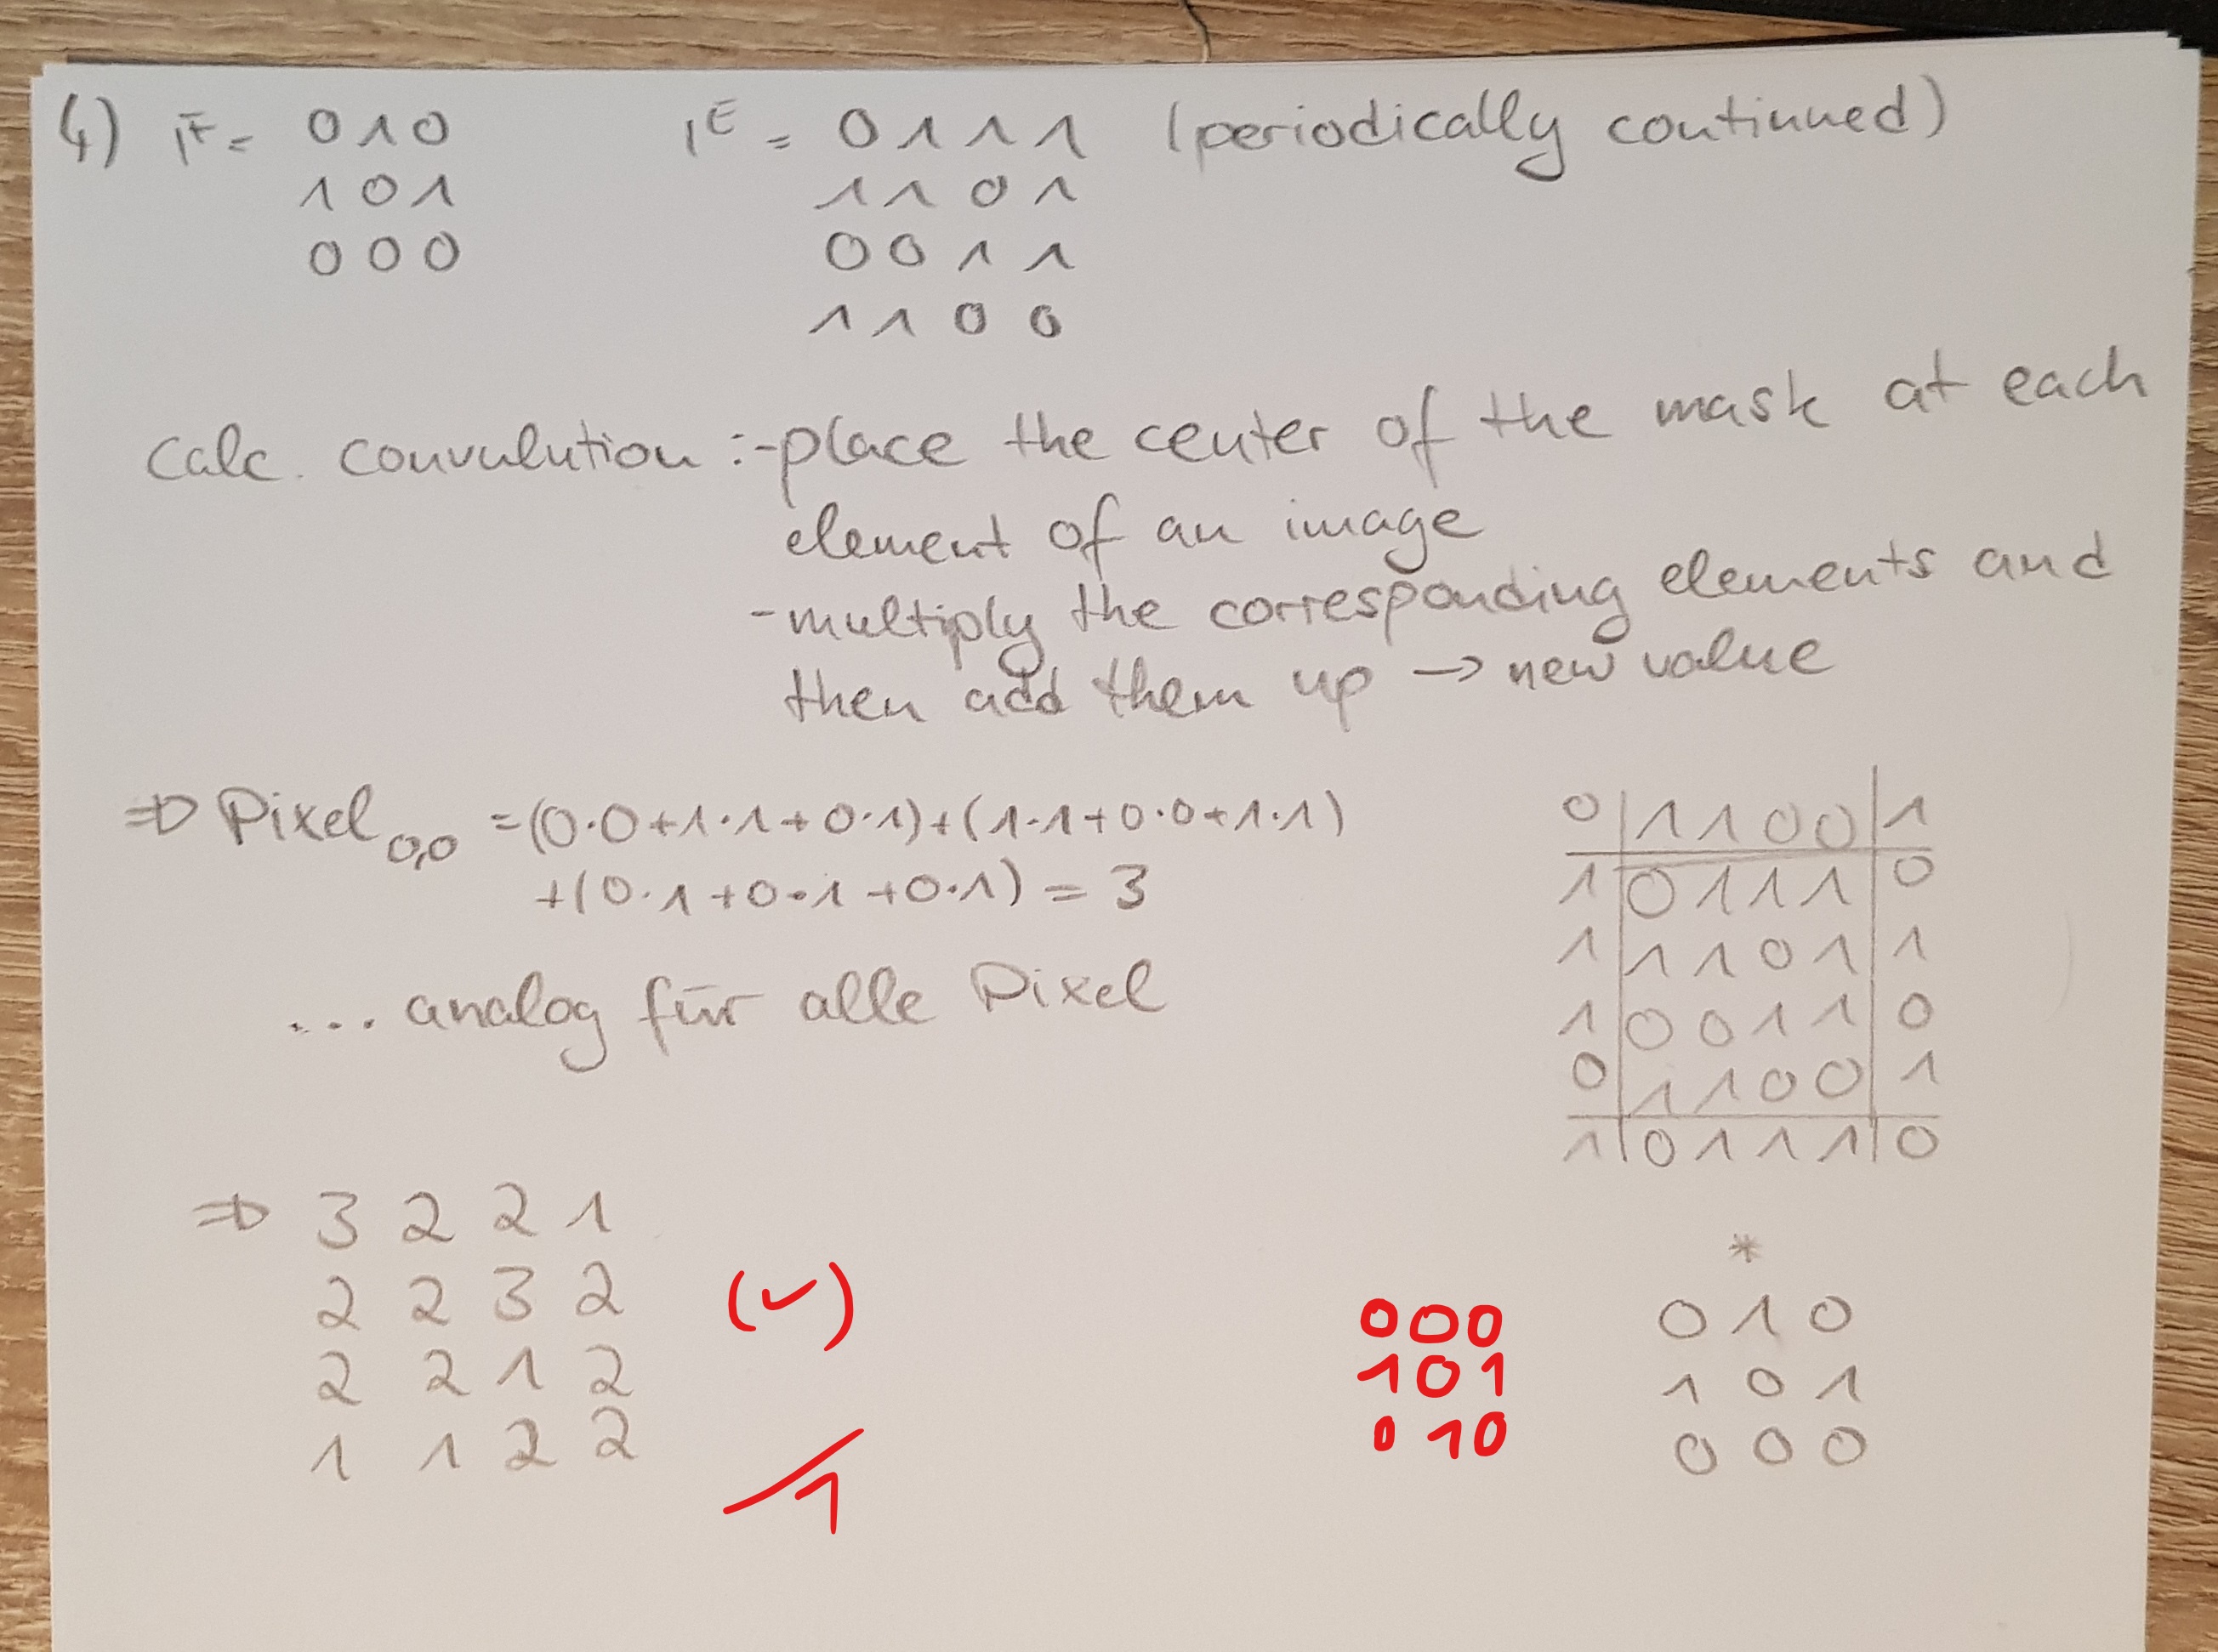 4) F = 0 1 0    E = 0 1 1 1 (periodically continued)
1 0 1    1 1 0 1
0 0 0    0 0 1 1
1 1 0 0
Calc. Convulution :-place the center of the mask at each
element of an image
-multiply the corresponding elements and
then add them up → new value
⇒ Pixel 0,0 =(0·0+1·1+0·1)+(1·1+0·0+1·1)
+(0·1+0·1+0·1) = 3
... analog für alle Pixel
0 | 1 1 0 0 | 1
1 | 0 1 1 1 | 0
1 | 1 1 0 1 | 1
1 | 0 0 1 1 | 0
0 | 1 1 0 0 | 1
1 | 0 1 1 1 | 0
⇒ 3 2 2 1
2 2 3 2
2 2 1 2
1 1 2 2
(✓)
1
*
000    0 1 0
101    1 0 1
010    0 0 0